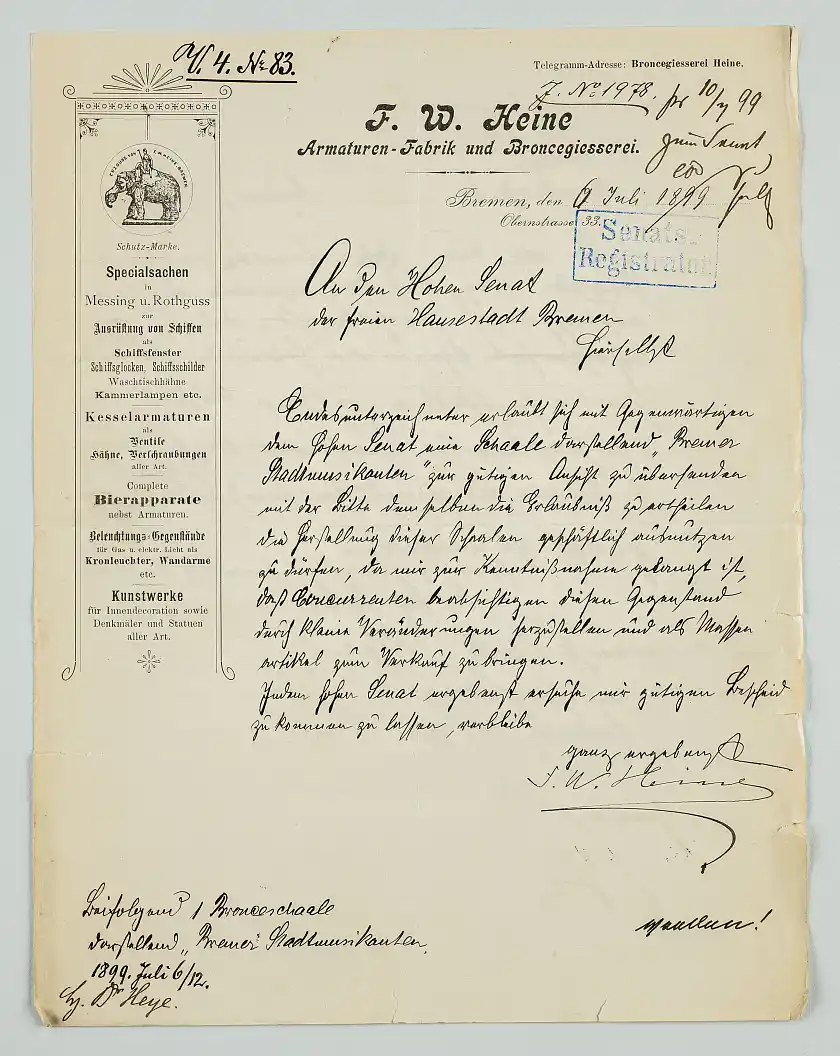 V. 4. № 83.
Telegramm-Adresse: Broncegiesserei Heine.
J. No 1978. pr 10/7 99
F. W. Heine
Armaturen-Fabrik und Broncegiesserei.
zum Senat
Bremen, den 6 Juli 1899
Obernstrasse 33.
Senats-
Registratur
Schutz-Marke.
Specialsachen
in
Messing u. Rothguss
zur
Ausrüstung von Schiffen
als
Schiffsfenster
Schiffsglocken, Schiffsschilder
Waschtischhähne
Kammerlampen etc.
Kesselarmaturen
als
Ventile
Hähne, Verschraubungen
aller Art.
Complete
Bierapparate
nebst Armaturen.
Beleuchtungs-Gegenstände
für Gas u. elektr. Licht als
Kronleuchter, Wandarme
etc.
Kunstwerke
für Innendecoration sowie
Denkmäler und Statuen
aller Art.
An den Hohen Senat
der freien Hansestadt Bremen
hierselbst
Endesunterzeichneter erlaubt sich mit Gegenwärtigen
dem hohen Senat eine Schaale darstellend „Bremer
Stadtmusikanten" zur gütigen Ansicht zu übersenden
mit der Bitte demselben die Erlaubniß zu ertheilen
die Herstellung dieser Schaalen geschäftlich ausnutzen
zu dürfen, da mir zur Kenntnißnahme gelangt ist,
daß Concurrenten beabsichtigen diesen Gegenstand
durch kleine Veränderungen herzustellen und als Massen
artikel zum Verkauf zu bringen.
Indem hohen Senat ergebenst ersuche mir gütigen Bescheid
zu kommen zu lassen, verbleibe
ganz ergebenst
F. W. Heine
Beifolgend 1 Bronceschaale
darstellend „Bremer Stadtmusikanten.
wenden!
1899. Juli 6/12.
Hr. Dr Heye.